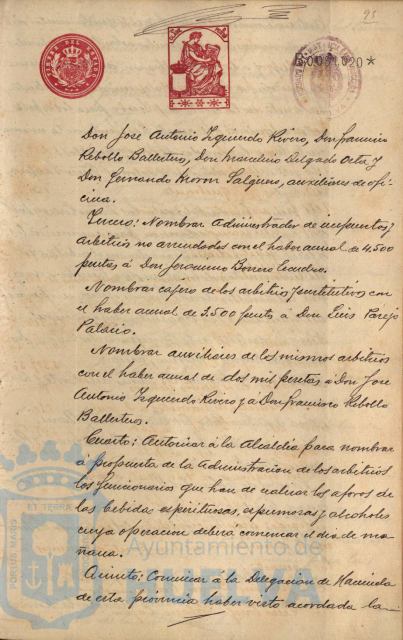 95
TIMBRE DEL ESTADO
B0051020*
Don José Antonio Izquierdo Rivero, Don Francisco
Rebollo Ballestero, Don Marcelino Delgado Orta y
Don Fernando Moron Salguero, auxiliares de ofi-
cina.
Tercero: Nombrar Administrador de impuestos y
arbitrios no arrendados con el haber anual de 4.500
pesetas, á Don Jeronimo Borrero Escudero.
Nombrar cajero de los arbitrios sustitutivos con
el haber anual de 3.500 pesetas á Don Luis Parejo
Palacio.
Nombrar auxiliares de los mismos arbitrios
con el haber anual de dos mil pesetas á Don José
Antonio Izquierdo Rivero y á Don Francisco Rebollo
Ballestero.
Cuarto: Autorizar á la Alcaldia para nombrar
á propuesta de la Administracion de los arbitrios
los funcionarios que han de realizar los aforos de
las bebidas espirituosas, espumosas y alcoholes
cuya operacion deberá comenzar el dia de ma-
ñana.
Quinto: Comunicar á la Delegacion de Hacienda
de esta provincia haber visto acordada la
PORTUS MARIS
ET TERRÆ
Ayuntamiento de
HUELVA